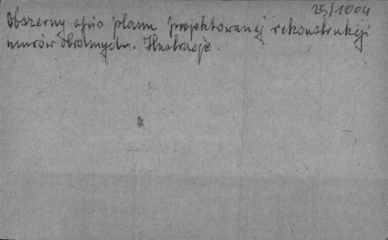 25/1004
Obszerny opis planu projektowanej rekonstrukcji
murów obronnych. Ilustracje.